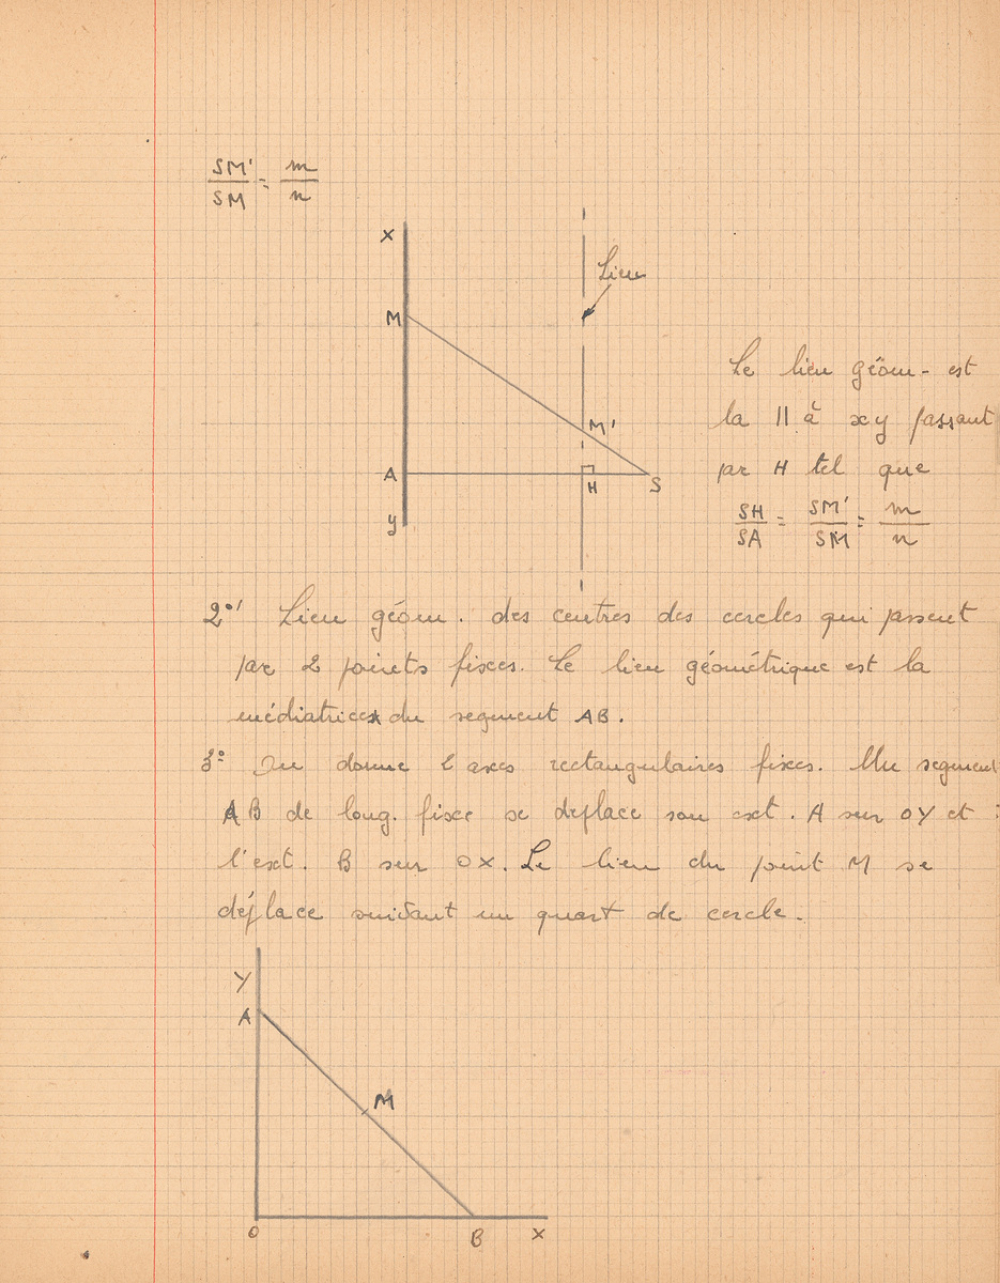 SM'/SM = m/n
x
Lieu
M
Le lieu géom- est
la || à xy passant
M'
par H tel que
A
H
S
SH/SA = SM'/SM = m/n
y
2°/ Lieu géom. des centres des cercles qui passent
par 2 points fixes. Le lieu géométrique est la
médiatrice du segment AB.
3° On donne 2 axes rectangulaires fixes. Un segment
AB de long. fixe se deplace son ext. A sur OY et
l'ext. B sur OX. Le lieu du point M se
déplace suivant un quart de cercle.
Y
A
M
O
B
X